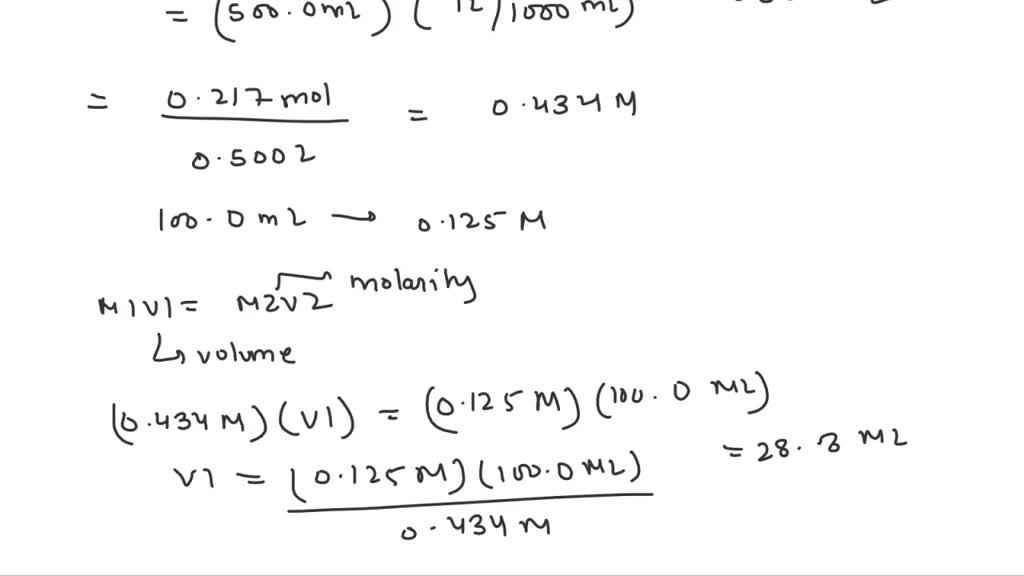 = (500.0 mL) (1L/1000 mL)
= 0.217 mol = 0.434 M
0.500L
100.0 mL → 0.125 M
M1V1 = M2V2 molarity
↳ volume
(0.434 M) (V1) = (0.125 M) (100.0 mL)
V1 = (0.125 M) (100.0 mL) = 28.8 mL
0.434 M